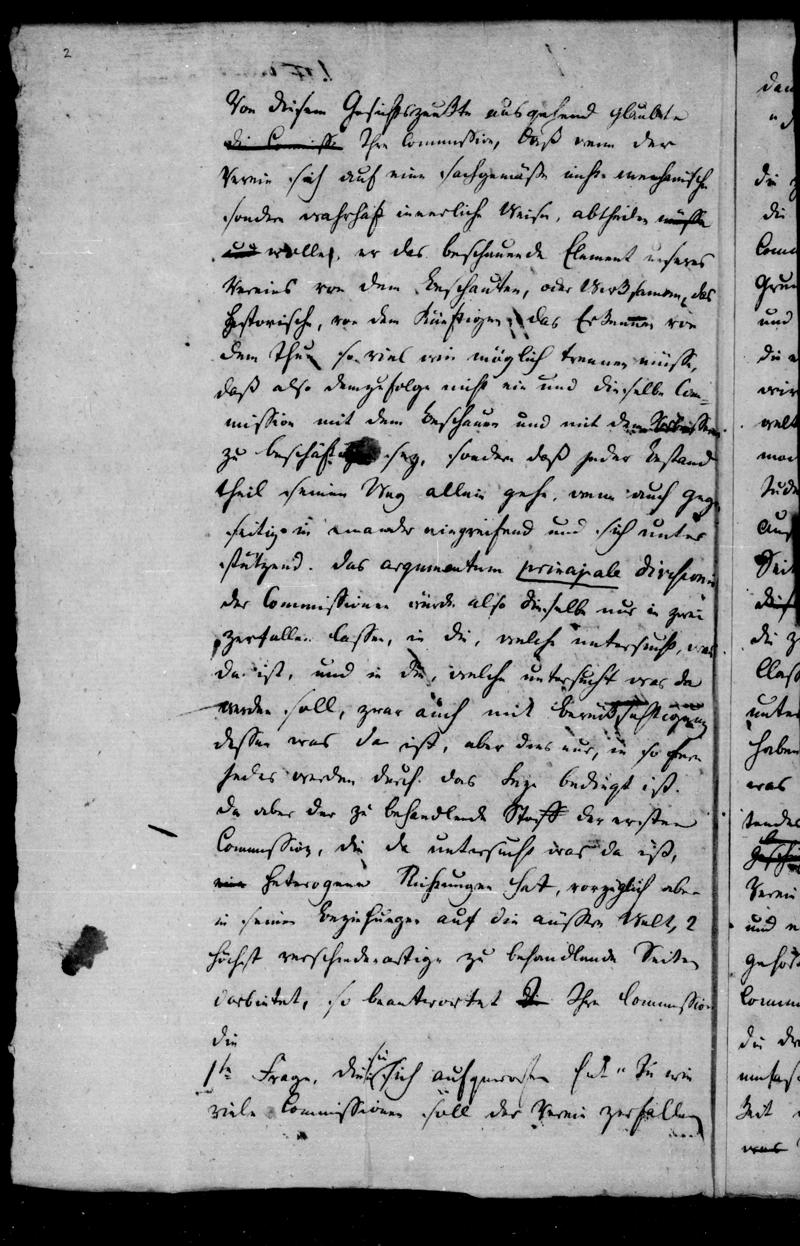 2
Von diesem Gesichtspunkte ausgehend glaubte
die Commiss Ihre Commission, daß wenn der
Verein sich auf eine sachgemäße nicht mechanische
sondern wahrhaft innerliche Weise, abtheilen müsse
und wolle, er das beschauende Element unseres
Vereins von dem Beschauten, oder Wirksamen, das
Historische, von dem Künftigen, das Erkennen von
dem Thun so viel wie möglich trennen müsse,
daß also demzufolge nicht ein und dieselbe Com-
mission mit dem Beschauen und mit dem
zu beschäftigen sey, sondern daß jeder Bestand
theil seinen Weg allein gehe, wenn auch gegen
seitig in einander eingreifend und sich unter
stützend. Das argumentum principale divisionis
der Commissionen würde also dieselbe nur in zwei
zerfallen lassen, in die, welche untersucht, was
da ist, und in die, welche untersucht was da
werden soll, zwar auch mit Berücksichtigung
dessen was da ist, aber dies nur, in so fern
jedes werden durch das Seyn bedingt ist.
Da aber der zu behandlende Stoff der ersten
Commission, die da untersucht was da ist,
eine heterogene Richtungen hat, vorzüglich aber
in seinen Beziehungen auf die äußere Welt, 2
höchst verschiedenartige zu behandlende Seiten
darbietet, so beantwortet Ihre Commission
die
1te Frage, die sie sich aufgeworfen hat "In wie
viele Commissionen soll der Verein zerfallen
die
die
Comm
und
die
wir
welt
Seit
die
Class
unter
haben
was
Verein
und
gehört
Comm
die
umfas
Zeit
was